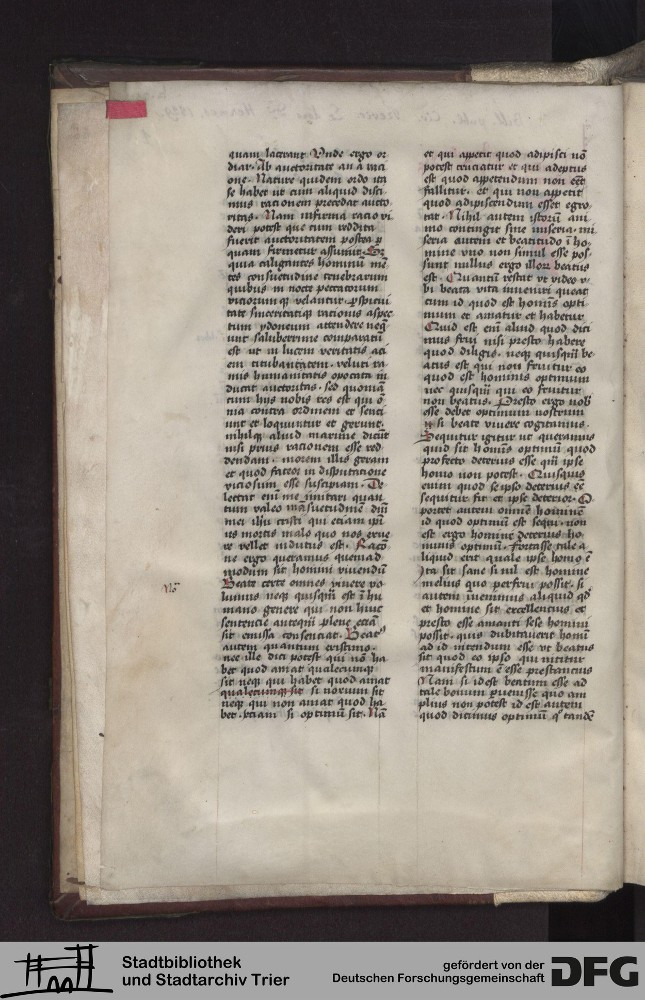 quam latrant Unde ergo or
diar. Ab auctoritate an a raci
one. Nature quidem ordo ita
se habet ut cum aliquid disci
mus racionem precedat aucto
ritas. Nam infirma racio vi
deri potest que cum reddita
fuerit auctoritatem postea p
quam firmetur assumit. Sz
quia caligantes hominū mē
tes consuetudine tenebrarum
quibus in nocte peccatorum
viciorumqȝ velantur. pspicui
tati sinceritatiqȝ racionis aspec
tum ydoneum attendere neqȝ
unt saluberrime comparatū
est ut in lucem veritatis aci
em titubantem. veluti ra
mis humanitatis opacata in
ducat auctoritas. sed quoniā
cum hijs nobis res est qui ō
nia contra ordinem et senci
unt et loquuntur et gerunt.
nihilqȝ aliud maxime dicūt
nisi prius racionem esse red
dendam. morem illis geram
et quod fateor in disputacione
viciosum esse suscipiam. De
lectat enī me imitari quan
tum valeo mansuetudinē dnī
mei ihū cristi qui etiam ipī
us mortis malo quo nos erue
re vellet indutus est. Racō
ne ergo queramus quemad
modum sit homini vivendū
Beate certe omnes vivere vo
lumus neqȝ quisqm̄ est ī hu
mano genere qui non huic
sentencie anteqm̄ plene eciā
sit emissa consenciat. Beatꝰ
autem quantum existimo.
nec ille dici potest qui nō ha
bet quod amat qualecumqȝ
sit neqȝ qui habet quod amat
qualecumqȝ sit si noxium sit
neqȝ qui non amat quod ha
bet. etiam si optimū sit. Nā
Nō
et qui appetit quod adipisci nō
potest cruciatur et qui adeptus
est quod appetendum non eēt
fallitur. et qui non appetit
quod adipiscendum esset egro
tat. Nihil autem istorū ani
mo contingit sine miseria. mi
seria autem et beatitudo ī ho
mine uno non simul esse pos
sunt nullus ergo illorꝝ beatus
est. Quartū restat ut video u
bi beata vita inveniri queat
cum id quod est hominis opti
mum et amatur et habetur
Quid est enī aliud quod dici
mus frui nisi presto habere
quod diligis. neqȝ quisqm̄ be
atus est qui non fruitur eo
quod est hominis optimum
nec quisqm̄ qui eo fruitur
non beatus. Presto ergo nob
esse debet optimum nostrum
si beate vivere cogitamus.
Sequitur igitur ut queramus
quid sit hominis optimū quod
profecto deterius esse qm̄ ipse
homo non potest. Quisquis
enim quod seipso deterius ē
sequitur fit et ipse deterior. O
portet autem omnē hominem
id quod optimū est sequi. non
est ergo homine deterius ho
minis optimū. Fortasse tale a
liquid erit quale ipse homo ē
Ita sit sane si nil est homine
melius quo perfrui possit. si
autem invenimus aliquid qd
et homine sit excellencius et
presto esse amanti sese homini
possit. quis dubitaverit hominī
ad id nitendum esse ut beatus
sit quod eo ipso qui nititur
manifestum ē esse prestancius
Nam si id est beatum esse ad
tale bonum pvenisse quo am
plius non potest id est autem
quod dicimus optimū qȝ tandē
Stadtbibliothek
und Stadtarchiv Trier
gefördert von der
Deutschen Forschungsgemeinschaft
DFG